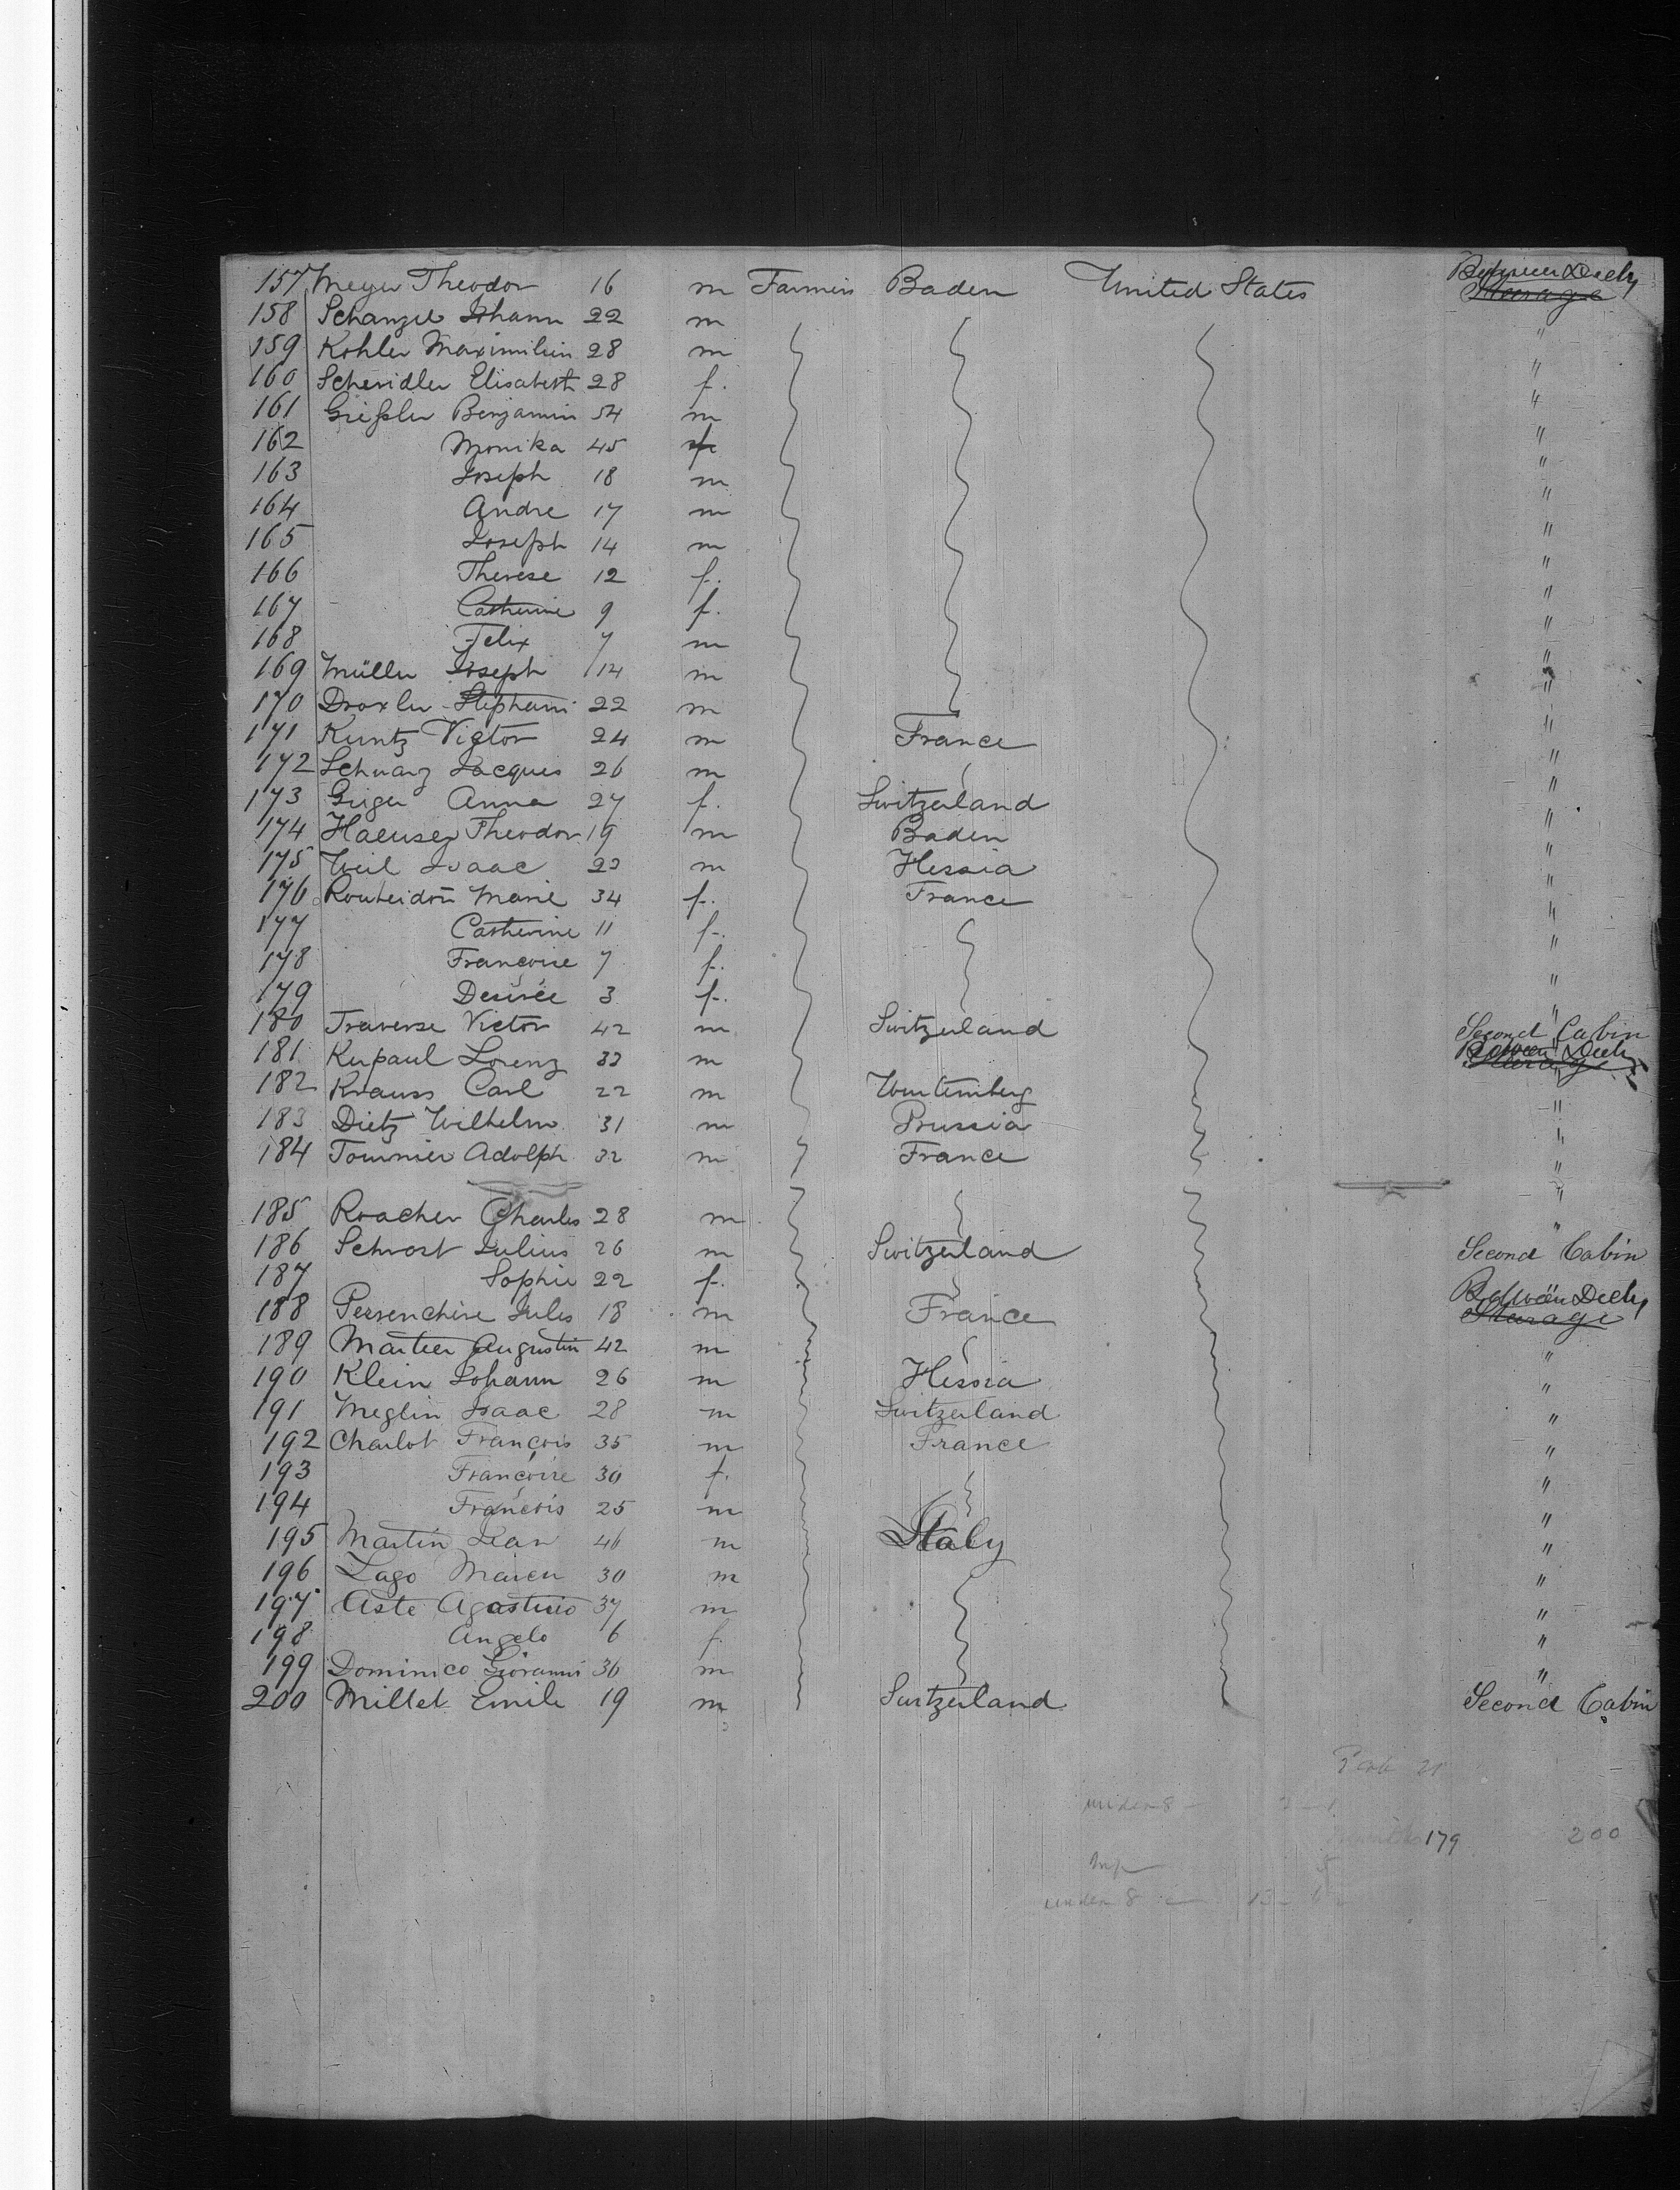 157 Meyer Theodor 16 m Farmers Baden United States Between Decks Steerage
158 Schanzel Johann 22 m "
159 Kohler Maximilien 28 m "
160 Schendler Elisabeth 28 f. "
161 Grießler Benjamin 54 m "
162 Monika 45 f "
163 Joseph 18 m "
164 Andre 17 m "
165 Joseph 14 m "
166 Therese 12 f. "
167 Catherine 9 f. "
168 Felix 7 m "
169 Müller Joseph 14 m "
170 Droxler Stephani 22 m "
171 Kuntz Victor 24 m France "
172 Schwarz Jacques 26 m "
173 Geiger Anna 27 f. Switzerland "
174 Haeuser Theodor 19 m Baden "
175 Weil Isaac 23 m Hessia "
176 Marie 34 f. France "
177 Catherine 11 f. "
178 Françoise 7 f. "
179 Desirée 3 f. "
180 Traverse Victor 42 m Switzerland Second Cabin
181 Kupaul Lorenz 33 m Between Decks Steerage
182 Krauss Carl 22 m Wurtemberg "
183 Dietz Wilhelm 31 m Prussia "
184 Tournier Adolph 32 m France "
185 Roacher Charles 28 m "
186 Schwost Julius 26 m Switzerland Second Cabin
187 Sophie 22 f.
188 Perrenchire Jules 18 m France Between Decks Steerage
189 Martier Augustin 42 m "
190 Klein Johann 26 m Hessia "
191 Meglin Isaac 28 m Switzerland "
192 Charlot François 35 m France "
193 Françoise 30 f. "
194 François 25 m "
195 Martin Jean 46 m Italy "
196 Lago 30 m "
197 Aste Agostino 37 m "
198 Angelo 6 f. "
199 Dominico Giovanni 36 m "
200 Millet Emile 19 m Switzerland Second Cabin
21
under 8
179 200
under 8